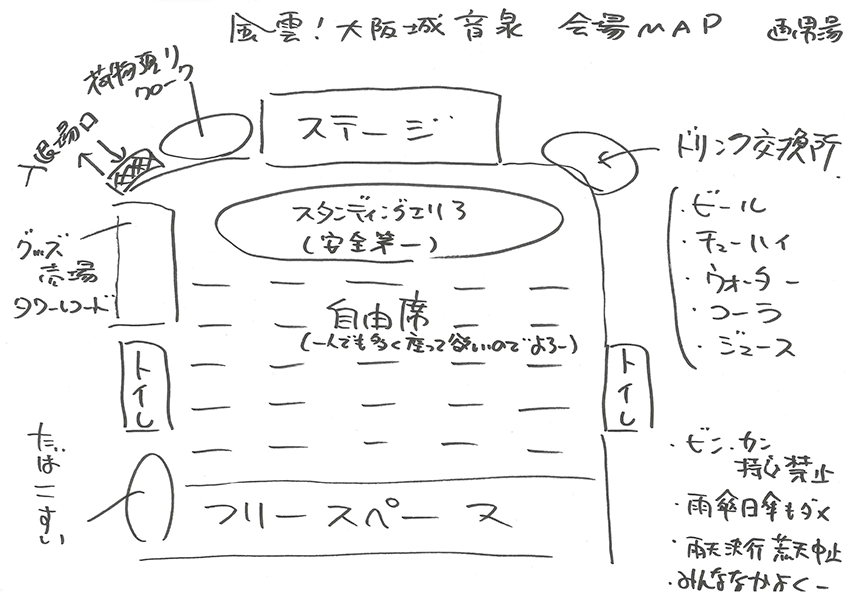 風雲！大阪城音泉 会場MAP 画・男湯
荷物預り
クローク
入退場口
ステージ
ドリンク交換所
・ビール
・チューハイ
・ウォーター
・コーラ
・ジュース
スタンディングエリア
（安全第一）
グッズ
売場
タワーレコード
自由席
（一人でも多く座って欲しいのでよろー）
トイレ
トイレ
たばこすい
フリースペース
・ビン・カン
持込禁止
・雨傘日傘もダメ
・雨天決行 荒天中止
・みんななかよくー